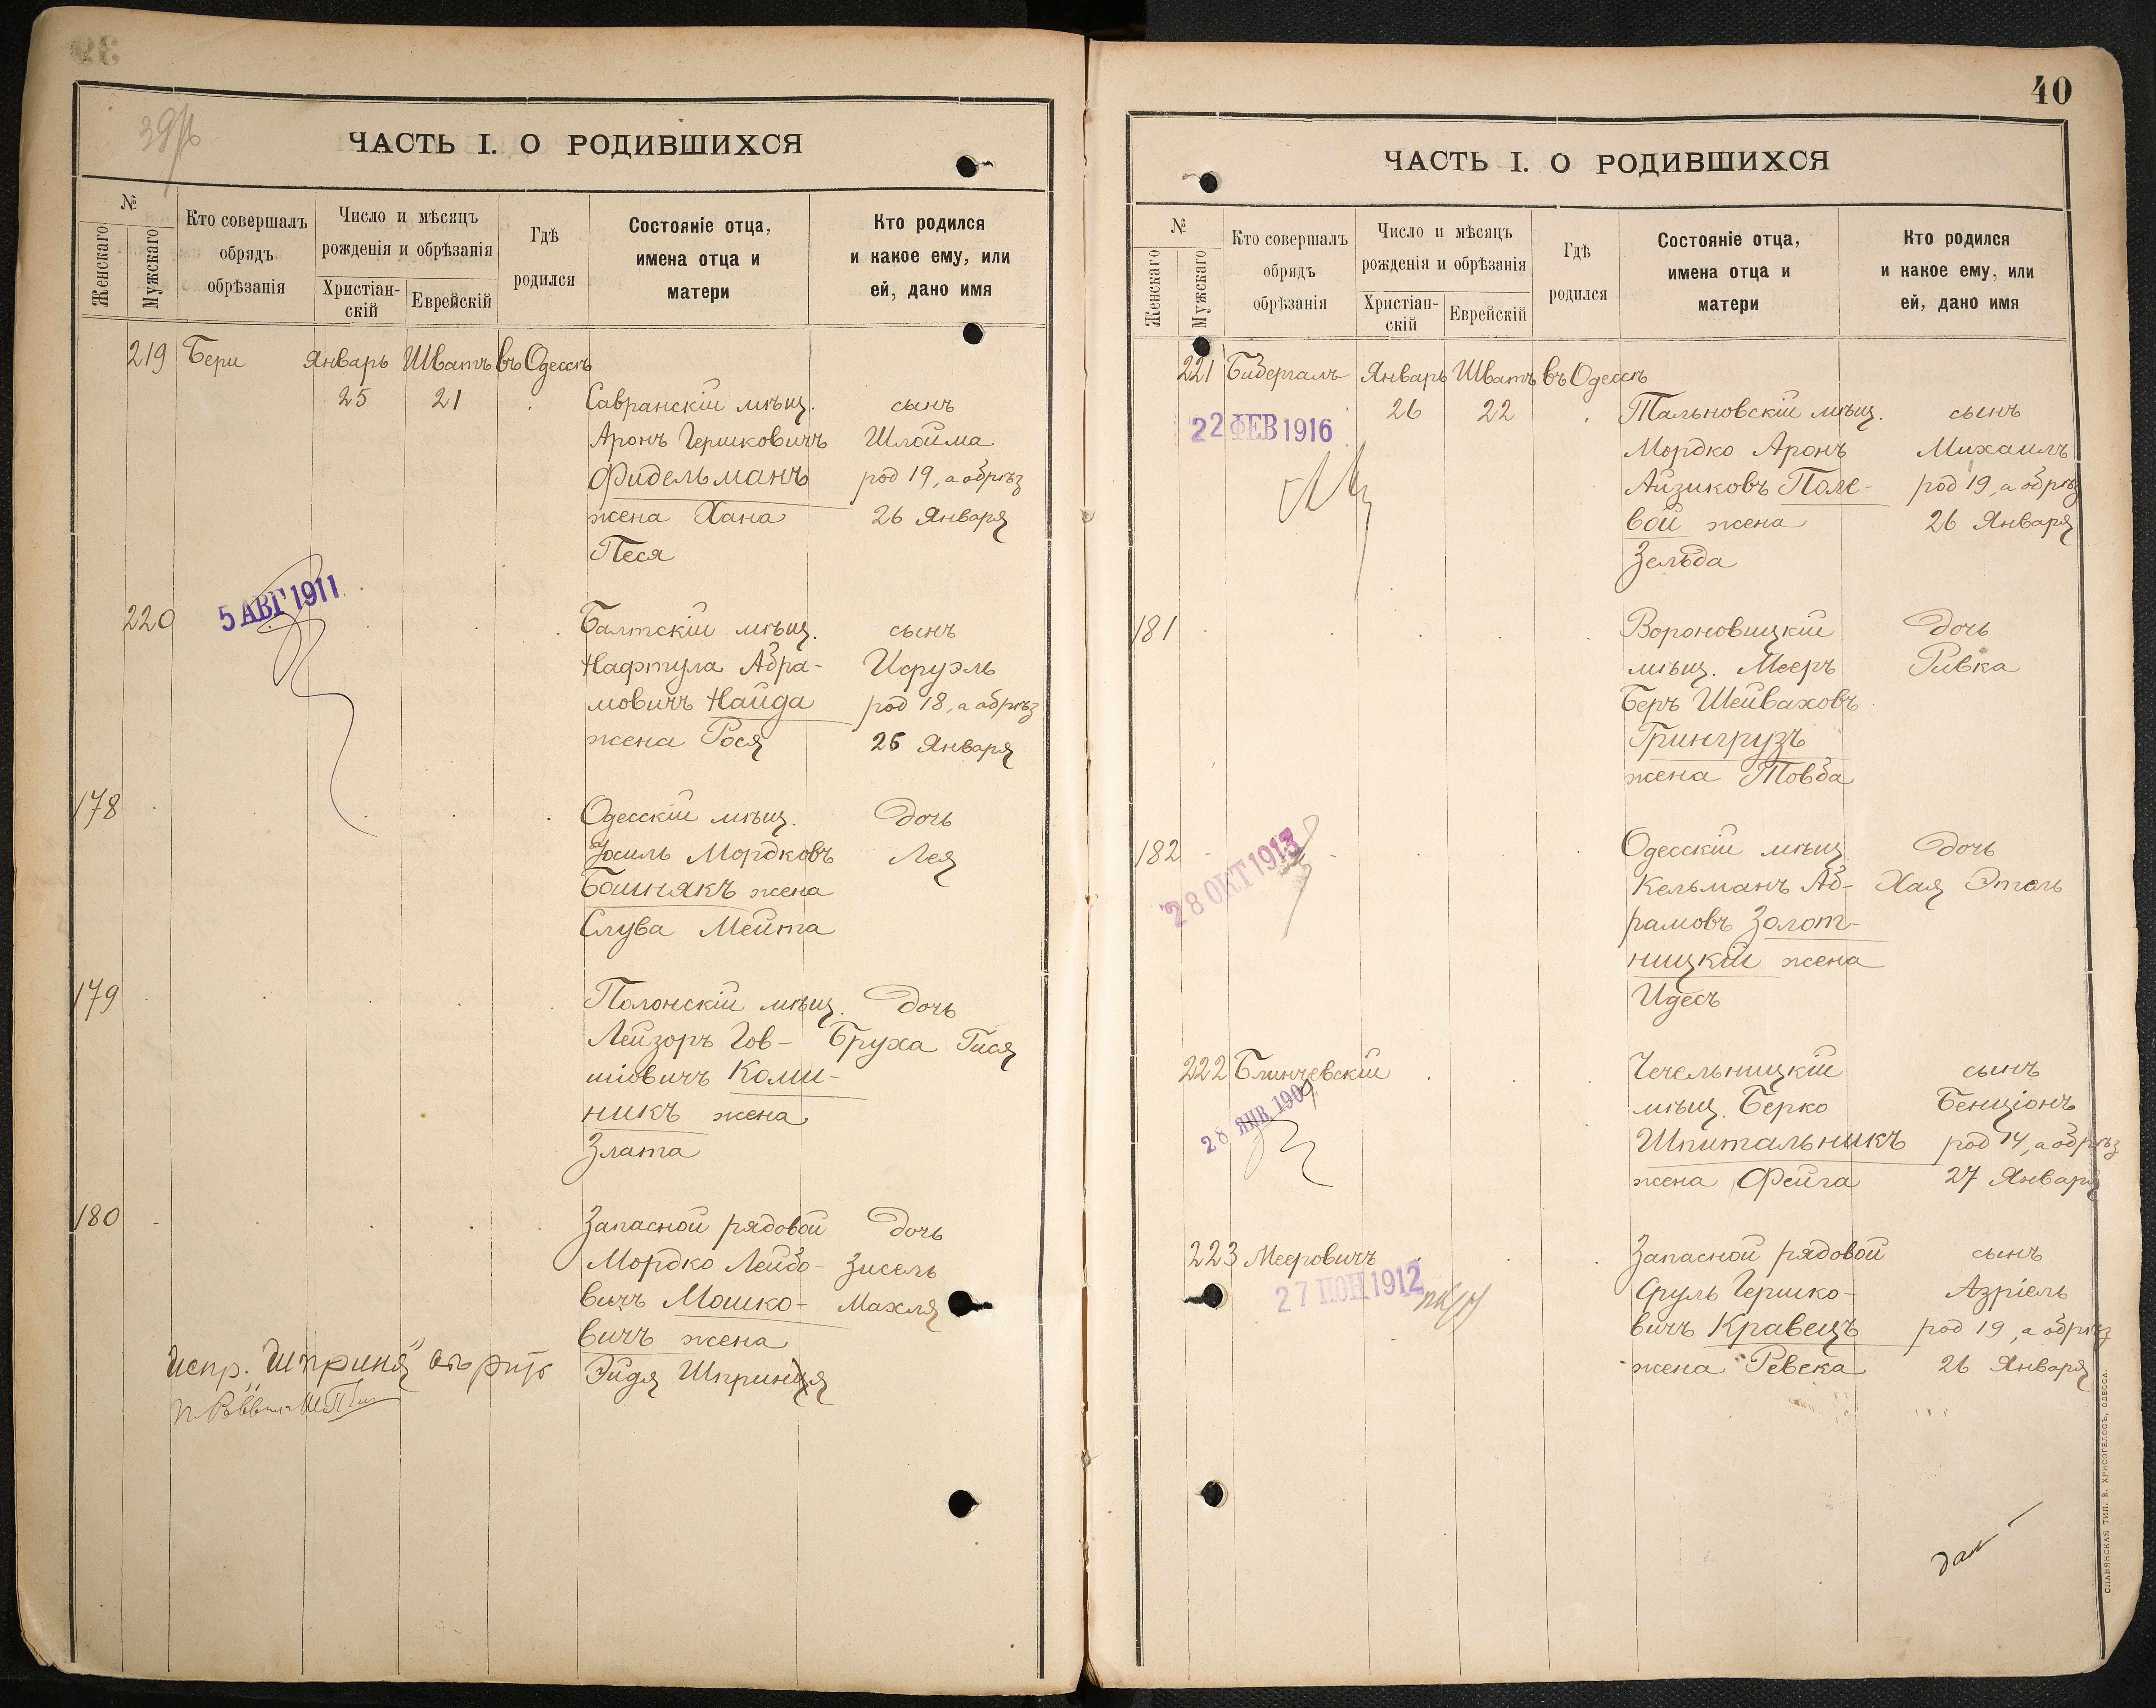 39
ЧАСТЬ I. О РОДИВШИХСЯ
№
Женскаго
Мужскаго
Кто совершалъ
обрядъ
обрѣзанія
Число и мѣсяцъ
рожденія и обрѣзанія
Христіан-
скій
Еврейскій
Гдѣ
родился
Состояніе отца,
имена отца и
матери
Кто родился
и какое ему, или
ей, дано имя
219 Бери Январь Шватъ въ Одессѣ
25 21 Савранскій мѣщ. сынъ
Аронъ Гершковичъ Шлойма
Фидельманъ род 19, а обрѣз
жена Хана 26 Января
Песя
5 АВГ 1911
220 Балтскій мѣщ. сынъ
Нафтула Абра- Исруэль
мовичъ Найда род 18, а обрѣз
жена Рося 26 Января
178 Одесскій мѣщ. дочь
Іосиль Мордковъ Лея
Бошнякъ жена
Слува Мейта
179 Полонскій мѣщ. дочь
Лейзоръ Гов- Бруха Гися
шіовичъ Коми-
никъ жена
Злата
180 Запасной рядовой дочь
Мордко Лейбо- Зисель
вичъ Мошко- Махля
вичъ жена
Эйдя Шпринця
Испр. „Шприня"
40
ЧАСТЬ I. О РОДИВШИХСЯ
№
Женскаго
Мужскаго
Кто совершалъ
обрядъ
обрѣзанія
Число и мѣсяцъ
рожденія и обрѣзанія
Христіан-
скій
Еврейскій
Гдѣ
родился
Состояніе отца,
имена отца и
матери
Кто родился
и какое ему, или
ей, дано имя
221 Бидергалъ Январь Шватъ въ Одессѣ
26 22 Тальновскій мѣщ. сынъ
22 ФЕВ 1916
Мордко Аронъ Михаилъ
Айзиковъ Поле- род 19, а обрѣз
вой жена 26 Января
Зельда
181 Вороновицкій дочь
мѣщ. Мееръ Ривка
Беръ Шейваховъ
Грингрузъ
жена Товба
182 Одесскій мѣщ. дочь
28 ОКТ 1913
Кельманъ Аб- Хая Этель
рамовъ Золот-
ницкій жена
Идесъ
222 Блинчевскій Чечельницкій сынъ
28 ЯНВ 1909
мѣщ. Берко Бенціонъ
Шпитальникъ род 14, а обрѣз
жена Фейга 27 Января
223 Мееровичъ Запасной рядовой сынъ
27 ІЮН 1912
Сруль Гершко- Азріель
вичъ Кравецъ род 19, а обрѣз
жена Ревека 26 Января
СЛАВЯНСКАЯ ТИП. Е. ХРИСОГЕЛОСЪ, ОДЕССА.